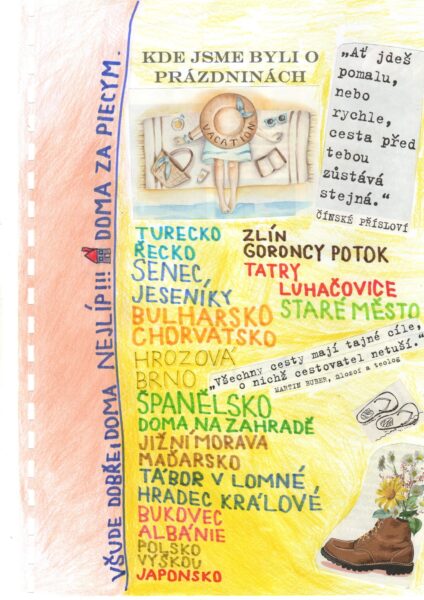 KDE JSME BYLI O
PRÁZDNINÁCH
VACATION
„Ať jdeš
pomalu,
nebo
rychle,
cesta před
tebou
zůstává
stejná.“
ČÍNSKÉ PŘÍSLOVÍ
VŠUDE DOBŘE, DOMA NEJLÍP!!! DOMA ZA PIECYM.
TURECKO
ŘECKO
SENEC
JESENÍKY
BULHARSKO
CHORVATSKO
HROZOVÁ
BRNO
ŠPANĚLSKO
DOMA NA ZAHRADĚ
JIŽNÍ MORAVA
MAĎARSKO
TÁBOR V LOMNÉ
HRADEC KRÁLOVÉ
BUKOVEC
ALBÁNIE
POLSKO
VYŠKOU
JAPONSKO
ZLÍN
GORONCY POTOK
TATRY
LUHAČOVICE
STARÉ MĚSTO
„Všechny cesty mají tajné cíle,
o nichž cestovatel netuší.“
MARTIN BUBER, filozof a teolog